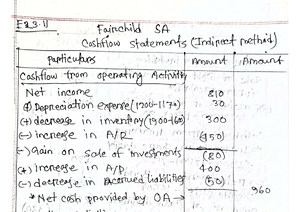 E23.11
Fairchild SA
Cashflow statements (Indirect method)
particulars amount Amount
Cashflow from operating Activity
Net income 810
(+) Depreciation expense (1200-1170) 30
(+) decrease in inventory (1900-1600) 300
(-) increase in A/R (450)
(-) Gain on sale of investments (80)
(+) increase in A/P 400
(-) decrease in accrued liabilities (50)
→ Net cash provided by OA → 960